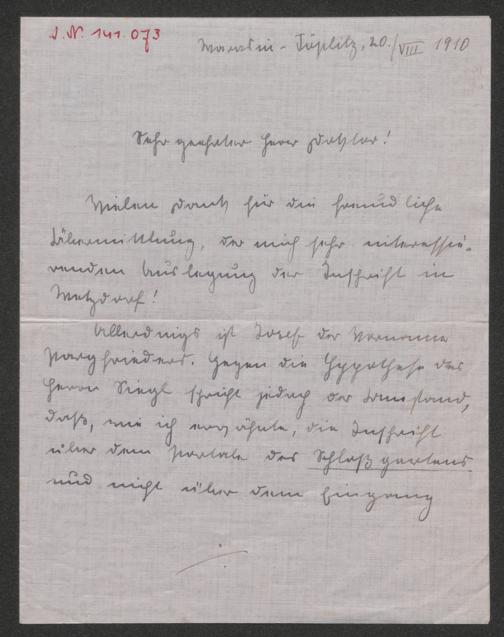 J.N. 141.073
Warasdin-Töplitz, 20./VIII 1910
Sehr geehrter Herr Doktor!
Vielen Dank für die freundliche
Übermittlung, der mich sehr interessie-
renden Auslegung der Inschrift in
Wetzdorf!
Allerdings ist Josef der Vorname
Pargfrieders. Gegen die Hypothese des
Herrn Siegl spricht jedoch der Umstand,
daß, wie ich erwähnte, die Inschrift
über dem Portale des Schloßgartens
und nicht über dem Eingang